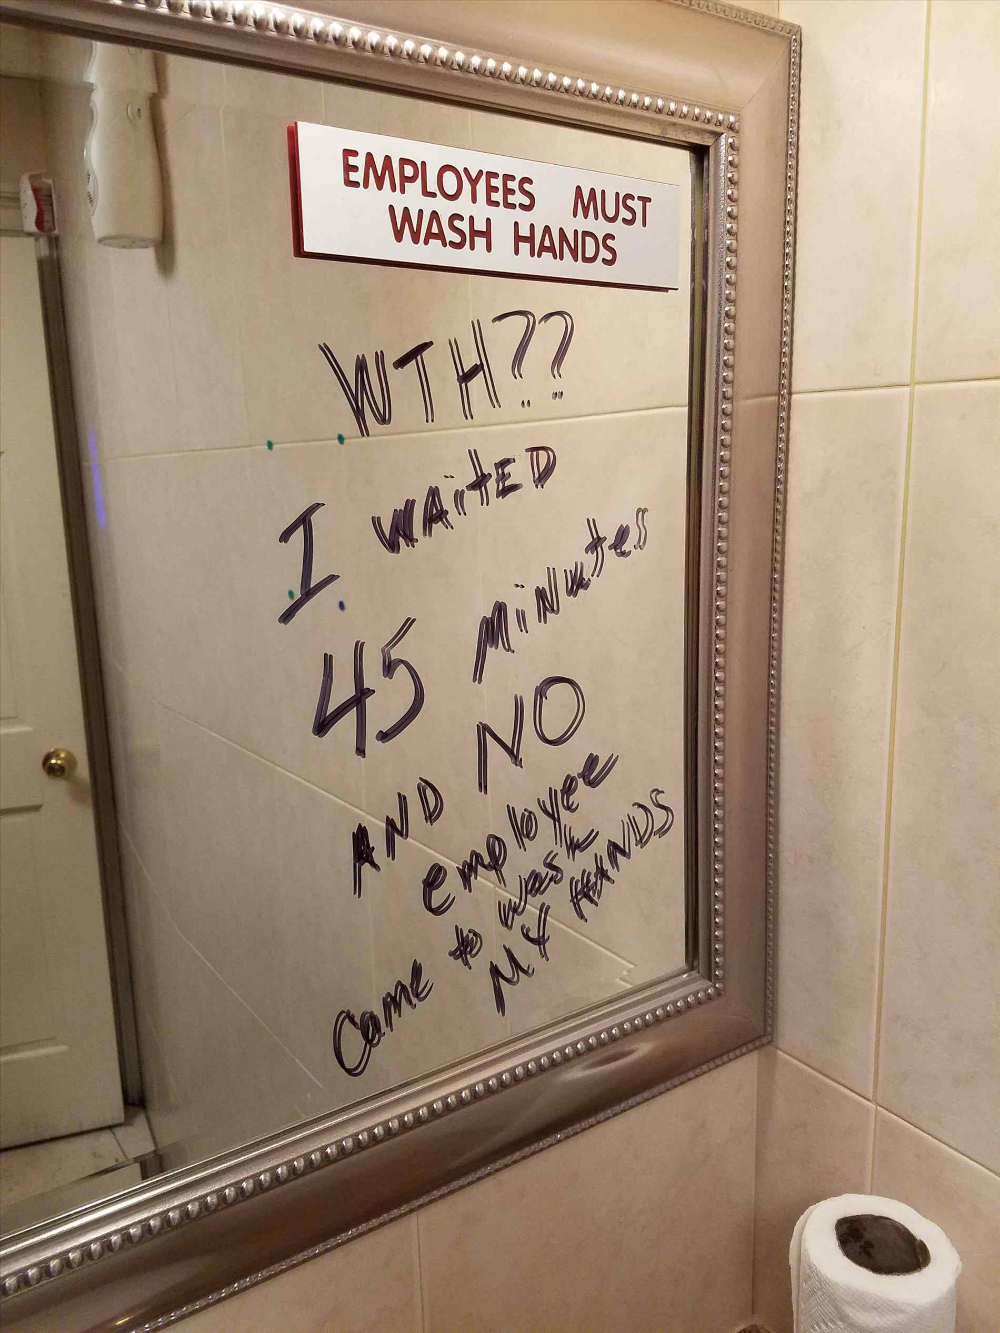 EMPLOYEES MUST
WASH HANDS
WTH??
I WAitED
45 MiNutes
AND NO
employee
Came to wash
MY HANDS